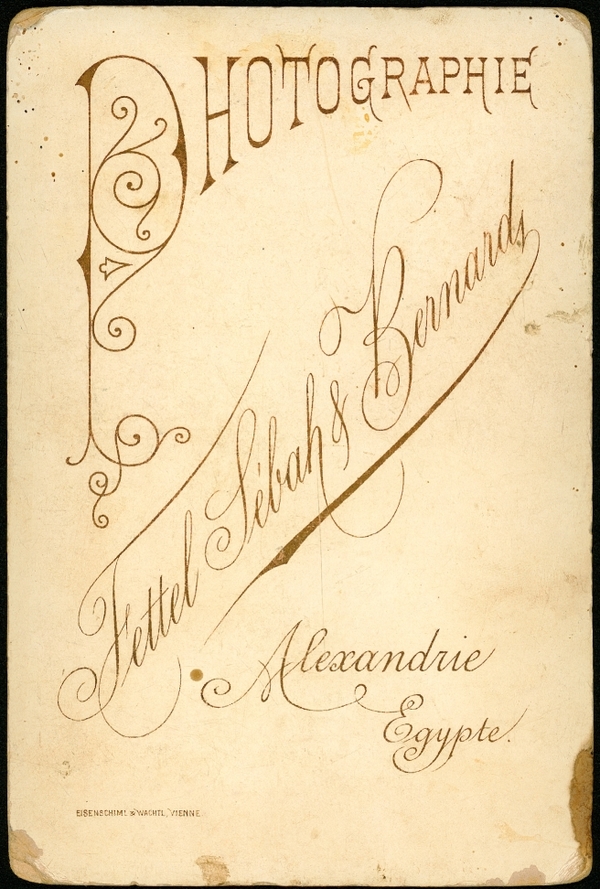 PHOTOGRAPHIE
Fettel Sébah & Bernard
Alexandrie
Egypte.
EISENSCHIML & WACHTL, VIENNE